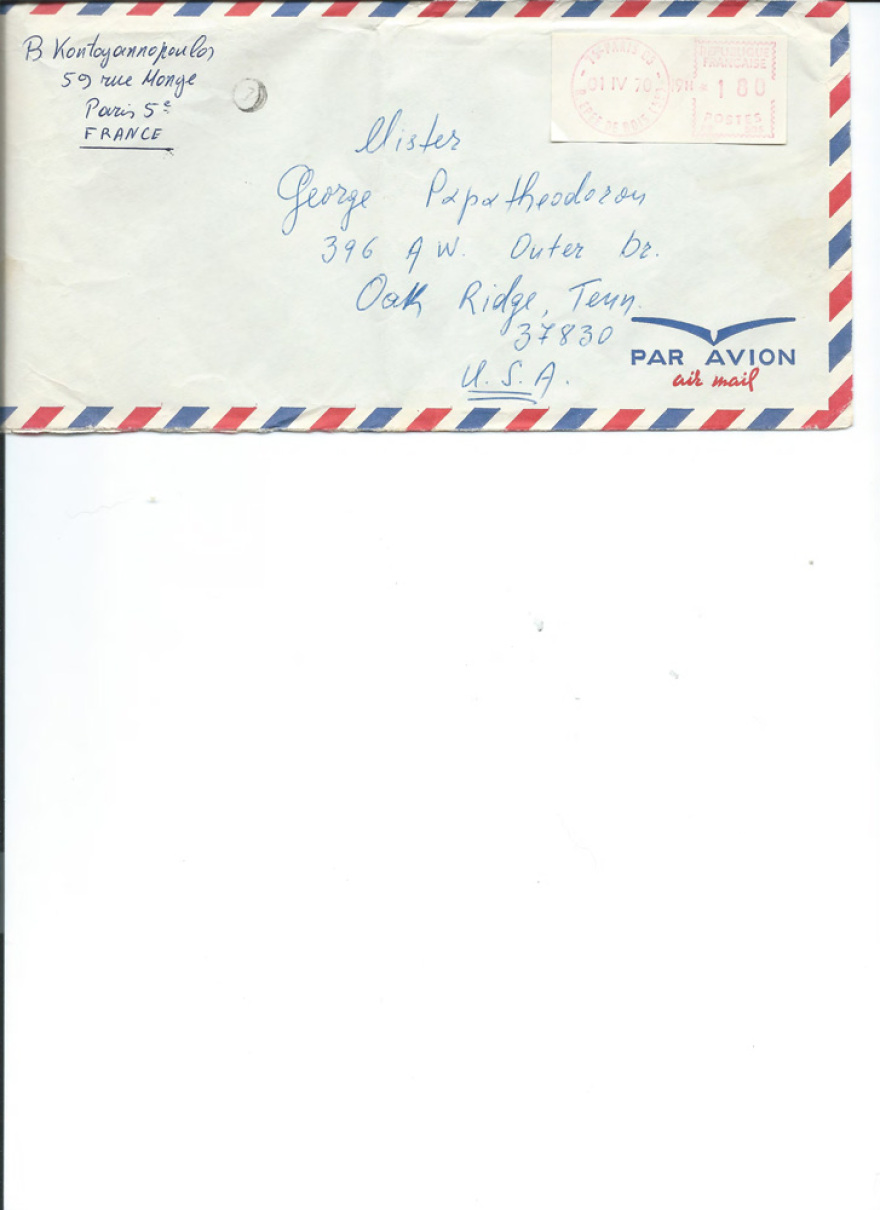 B Kontoyannopoulos
59 rue Monge
Paris 5e
FRANCE
7
01 IV 70
19H
REPUBLIQUE
FRANCAISE
180
POSTES
Mister
George Papatheodorou
396 A W. Outer Dr.
Oak Ridge, Tenn.
37830
U.S.A.
PAR AVION
air mail